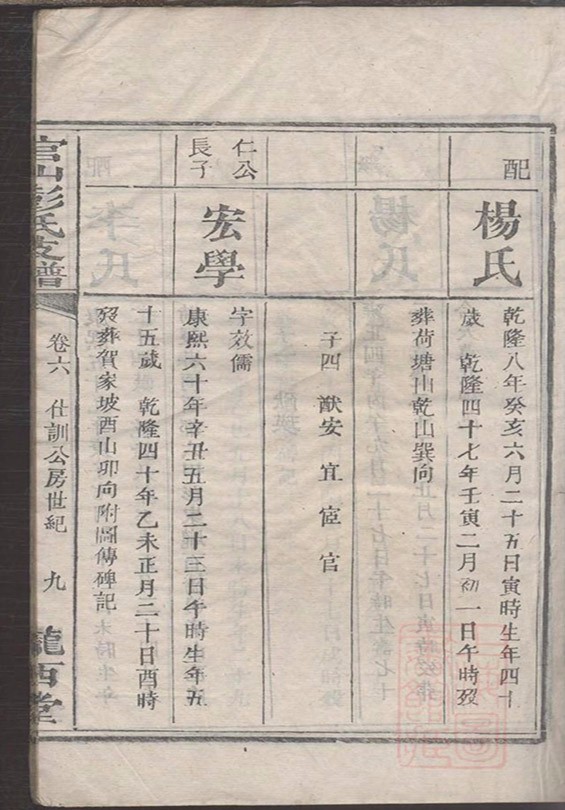 配
楊氏
乾隆八年癸亥六月二十五日寅時生年四十
歲 乾隆四十七年壬寅二月初一日午時歿
葬荷塘山乾山巽向
子四 猷安 宜 宦 官
仁公
長子
宏學
字效儒
康熙六十年辛丑五月二十三日午時生年五
十五歲 乾隆四十年乙未正月二十日酉時
歿葬賀家坡酉山卯向附圖傳碑記
官山彭氏支譜
卷六 仕訓公房世紀 九
隴西堂